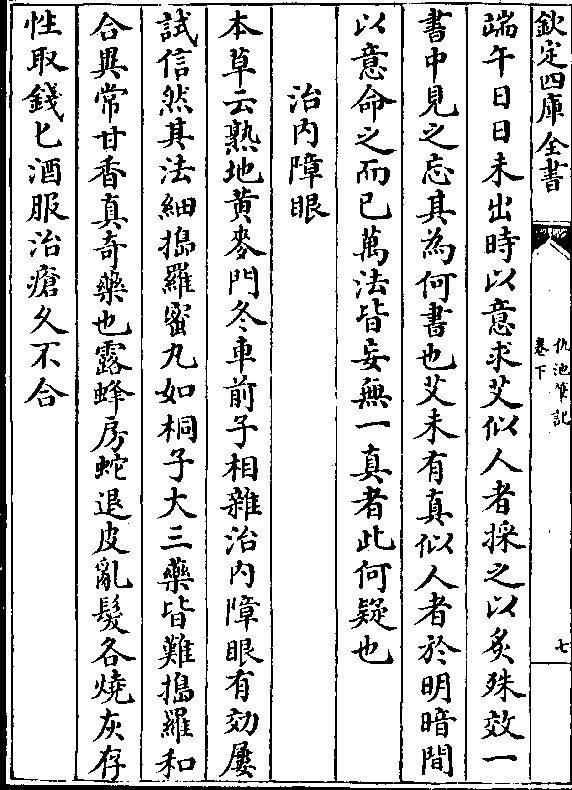 欽定四庫全書
仇池筆記
卷下
七
端午日日未出時以意求艾似人者採之以炙殊效一
書中見之忘其為何書也艾未有真似人者於明暗間
以意命之而已萬法皆妄無一真者此何疑也
治內障眼
本草云熟地黃麥門冬車前子相雜治內障眼有効屢
試信然其法細搗羅蜜丸如桐子大三藥皆難搗羅和
合異常甘香真奇藥也露蜂房蛇退皮亂髮各燒灰存
性取錢匕酒服治瘡久不合